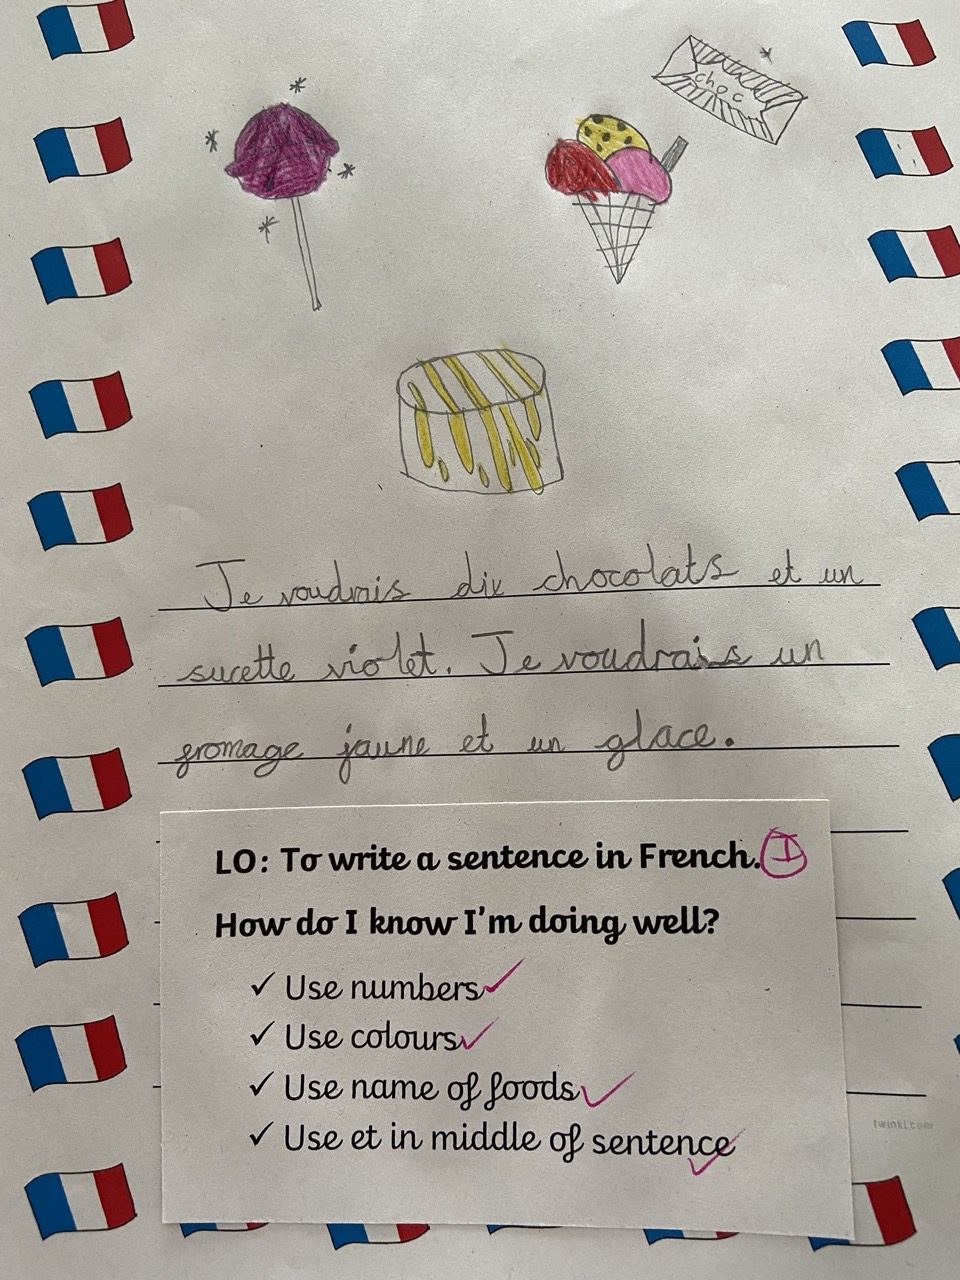 choc
Je voudrais dix chocolats et un
sucette violet. Je voudrais un
fromage jaune et un glace.
LO: To write a sentence in French. I
How do I know I'm doing well?
✓ Use numbers
✓ Use colours
✓ Use name of foods
✓ Use et in middle of sentence
twinkl.com